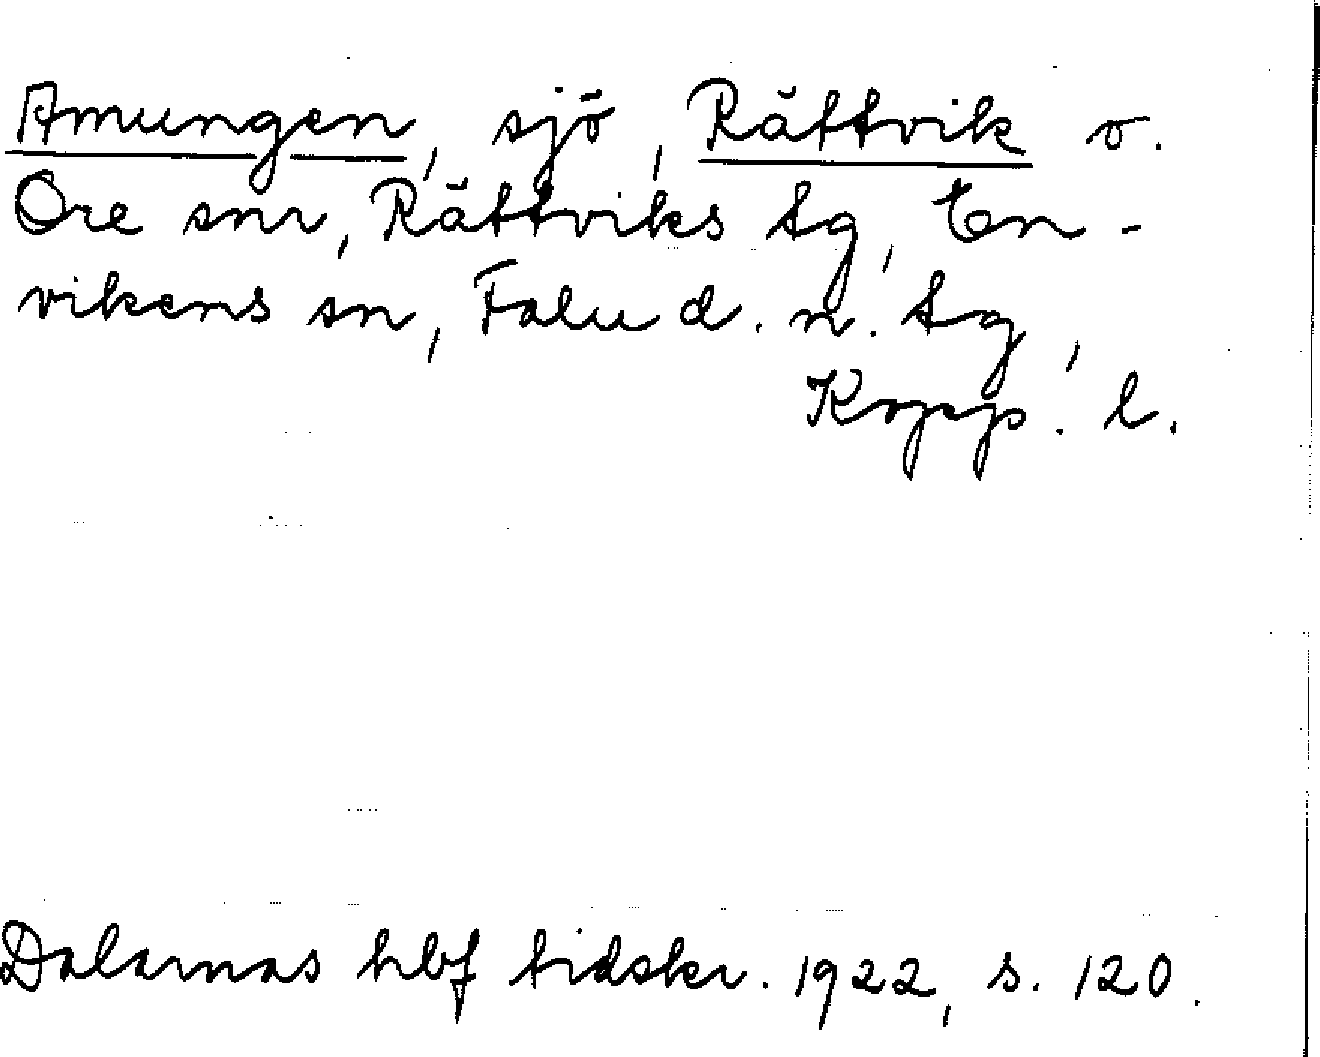 Amungen, sjö, Rättvik o.
Ore snr, Rättviks tg, En-
vikens sn, Falu d. n. tg,
Kopp. l.
Dalarnas hbf tidskr. 1922, s. 120.